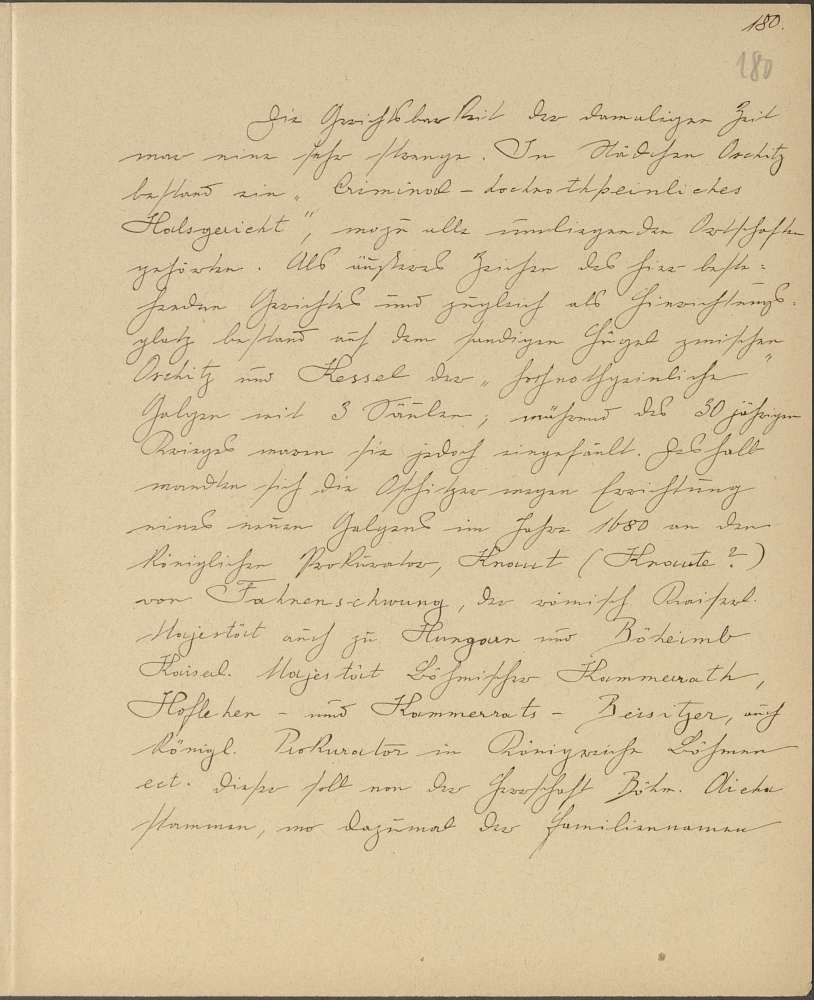 180.
180
Die Gerichtsbarkeit der damaligen Zeit
war eine sehr strenge. In Städchen Oschitz
bestand ein „Criminal - hochnothpeinliches
Halsgericht", wozu alle umliegenden Ortschaften
gehörten. Als äußeres Zeichen des hier beste-
henden Gerichtes und zugleich als Hinrichtungs-
platz bestand auf dem sandigen Hügel zwischen
Oschitz und Kessel der „hochnothpeinliche"
Galgen mit 3 Säulen; während des 30 jährigen
Krieges waren sie jedoch eingefäult. Deshalb
wandten sich die Oschitzer wegen Errichtung
eines neuen Galgens im Jahre 1680 an den
königlichen Prokurator, Knaut (Knaute?)
von Fahnenschwung, der römisch Kaiserl.
Majestät auch zu Hungarn und Böheimb
Kaiserl. Majestät Böhmischer Kammerrath,
Hoflehen - und Kammerrats - Beisitzer, auch
königl. Prokurator in Königreiche Böhmen
ect. Dieser soll von der Herrschaft Böhm. Aicha
stammen, wo dazumal der Familiennamen